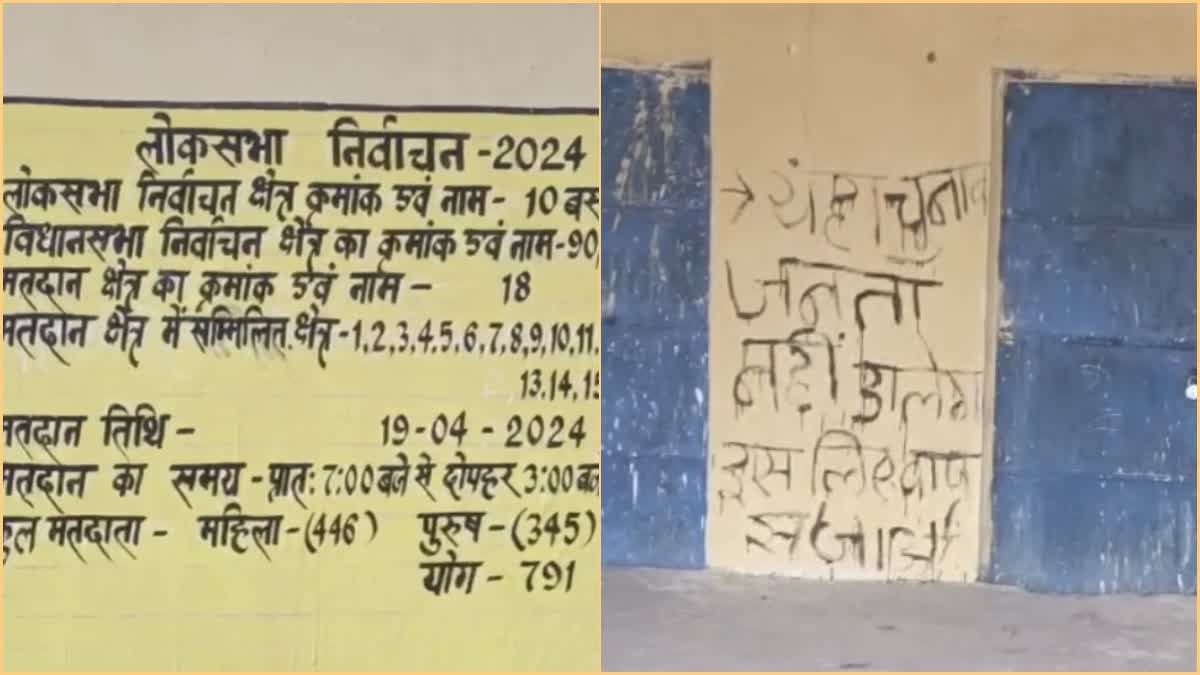 लोकसभा निर्वाचन -2024
लोकसभा निर्वाचन क्षेत्र क्रमांक एवं नाम - 10 बस
विधानसभा निर्वाचन क्षेत्र का क्रमांक एवं नाम-90
मतदान क्षेत्र का क्रमांक एवं नाम - 18
मतदान क्षेत्र में सम्मिलित क्षेत्र -1,2,3,4,5,6,7,8,9,10,11,
13,14,15
मतदान तिथि - 19-04-2024
मतदान का समय - प्रात: 7:00 बजे से दोपहर 3:00 बजे
कुल मतदाता - महिला -(446) पुरुष -(345)
योग - 791
→ यंहा चुनाव
जनता
नहीं डालेगा
इस लिए वापस
जाओ